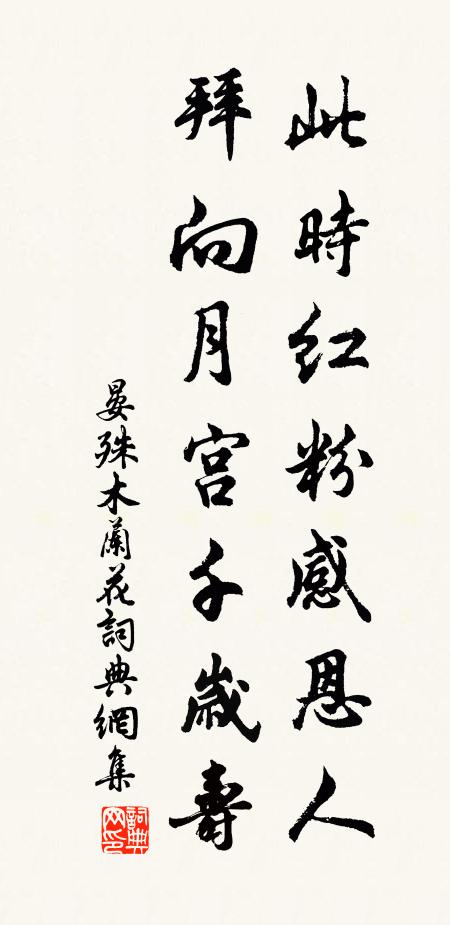 此時红粉感恩人
拜向月宮千歲壽
晏殊木蘭花詞典網集
詞典
网印